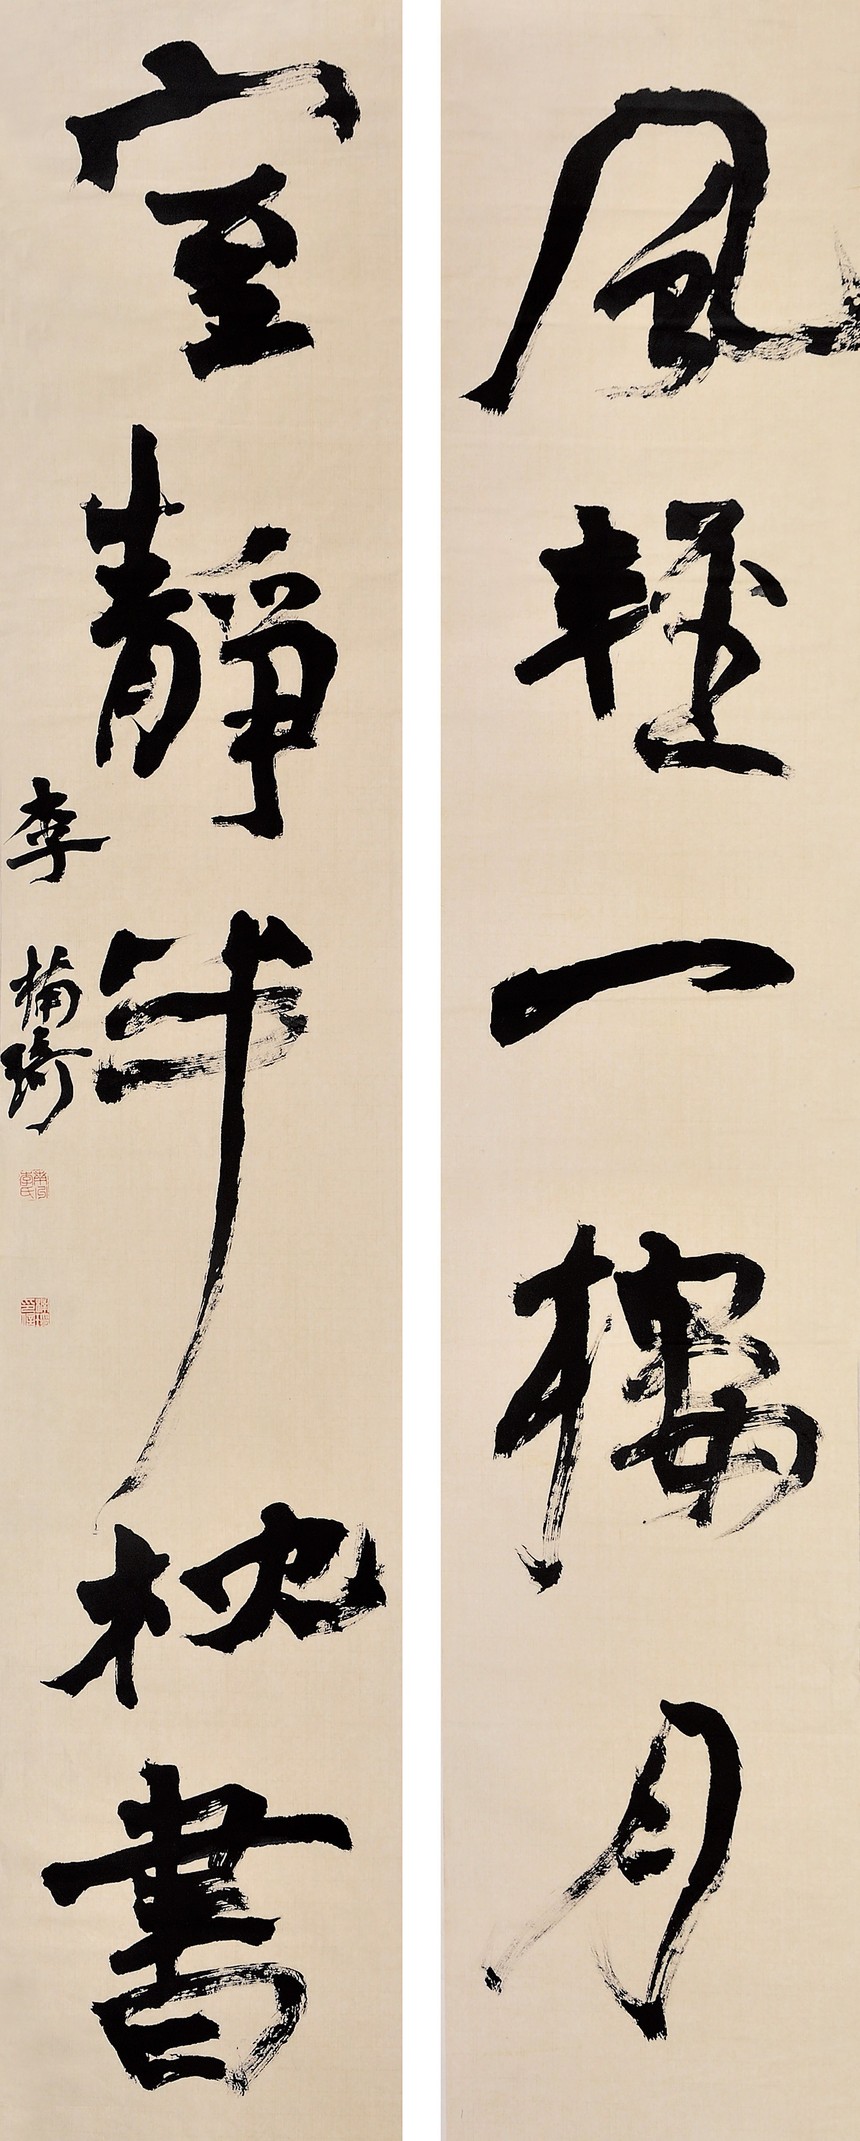 風輕一樓月
室靜半枕書
李楠琦